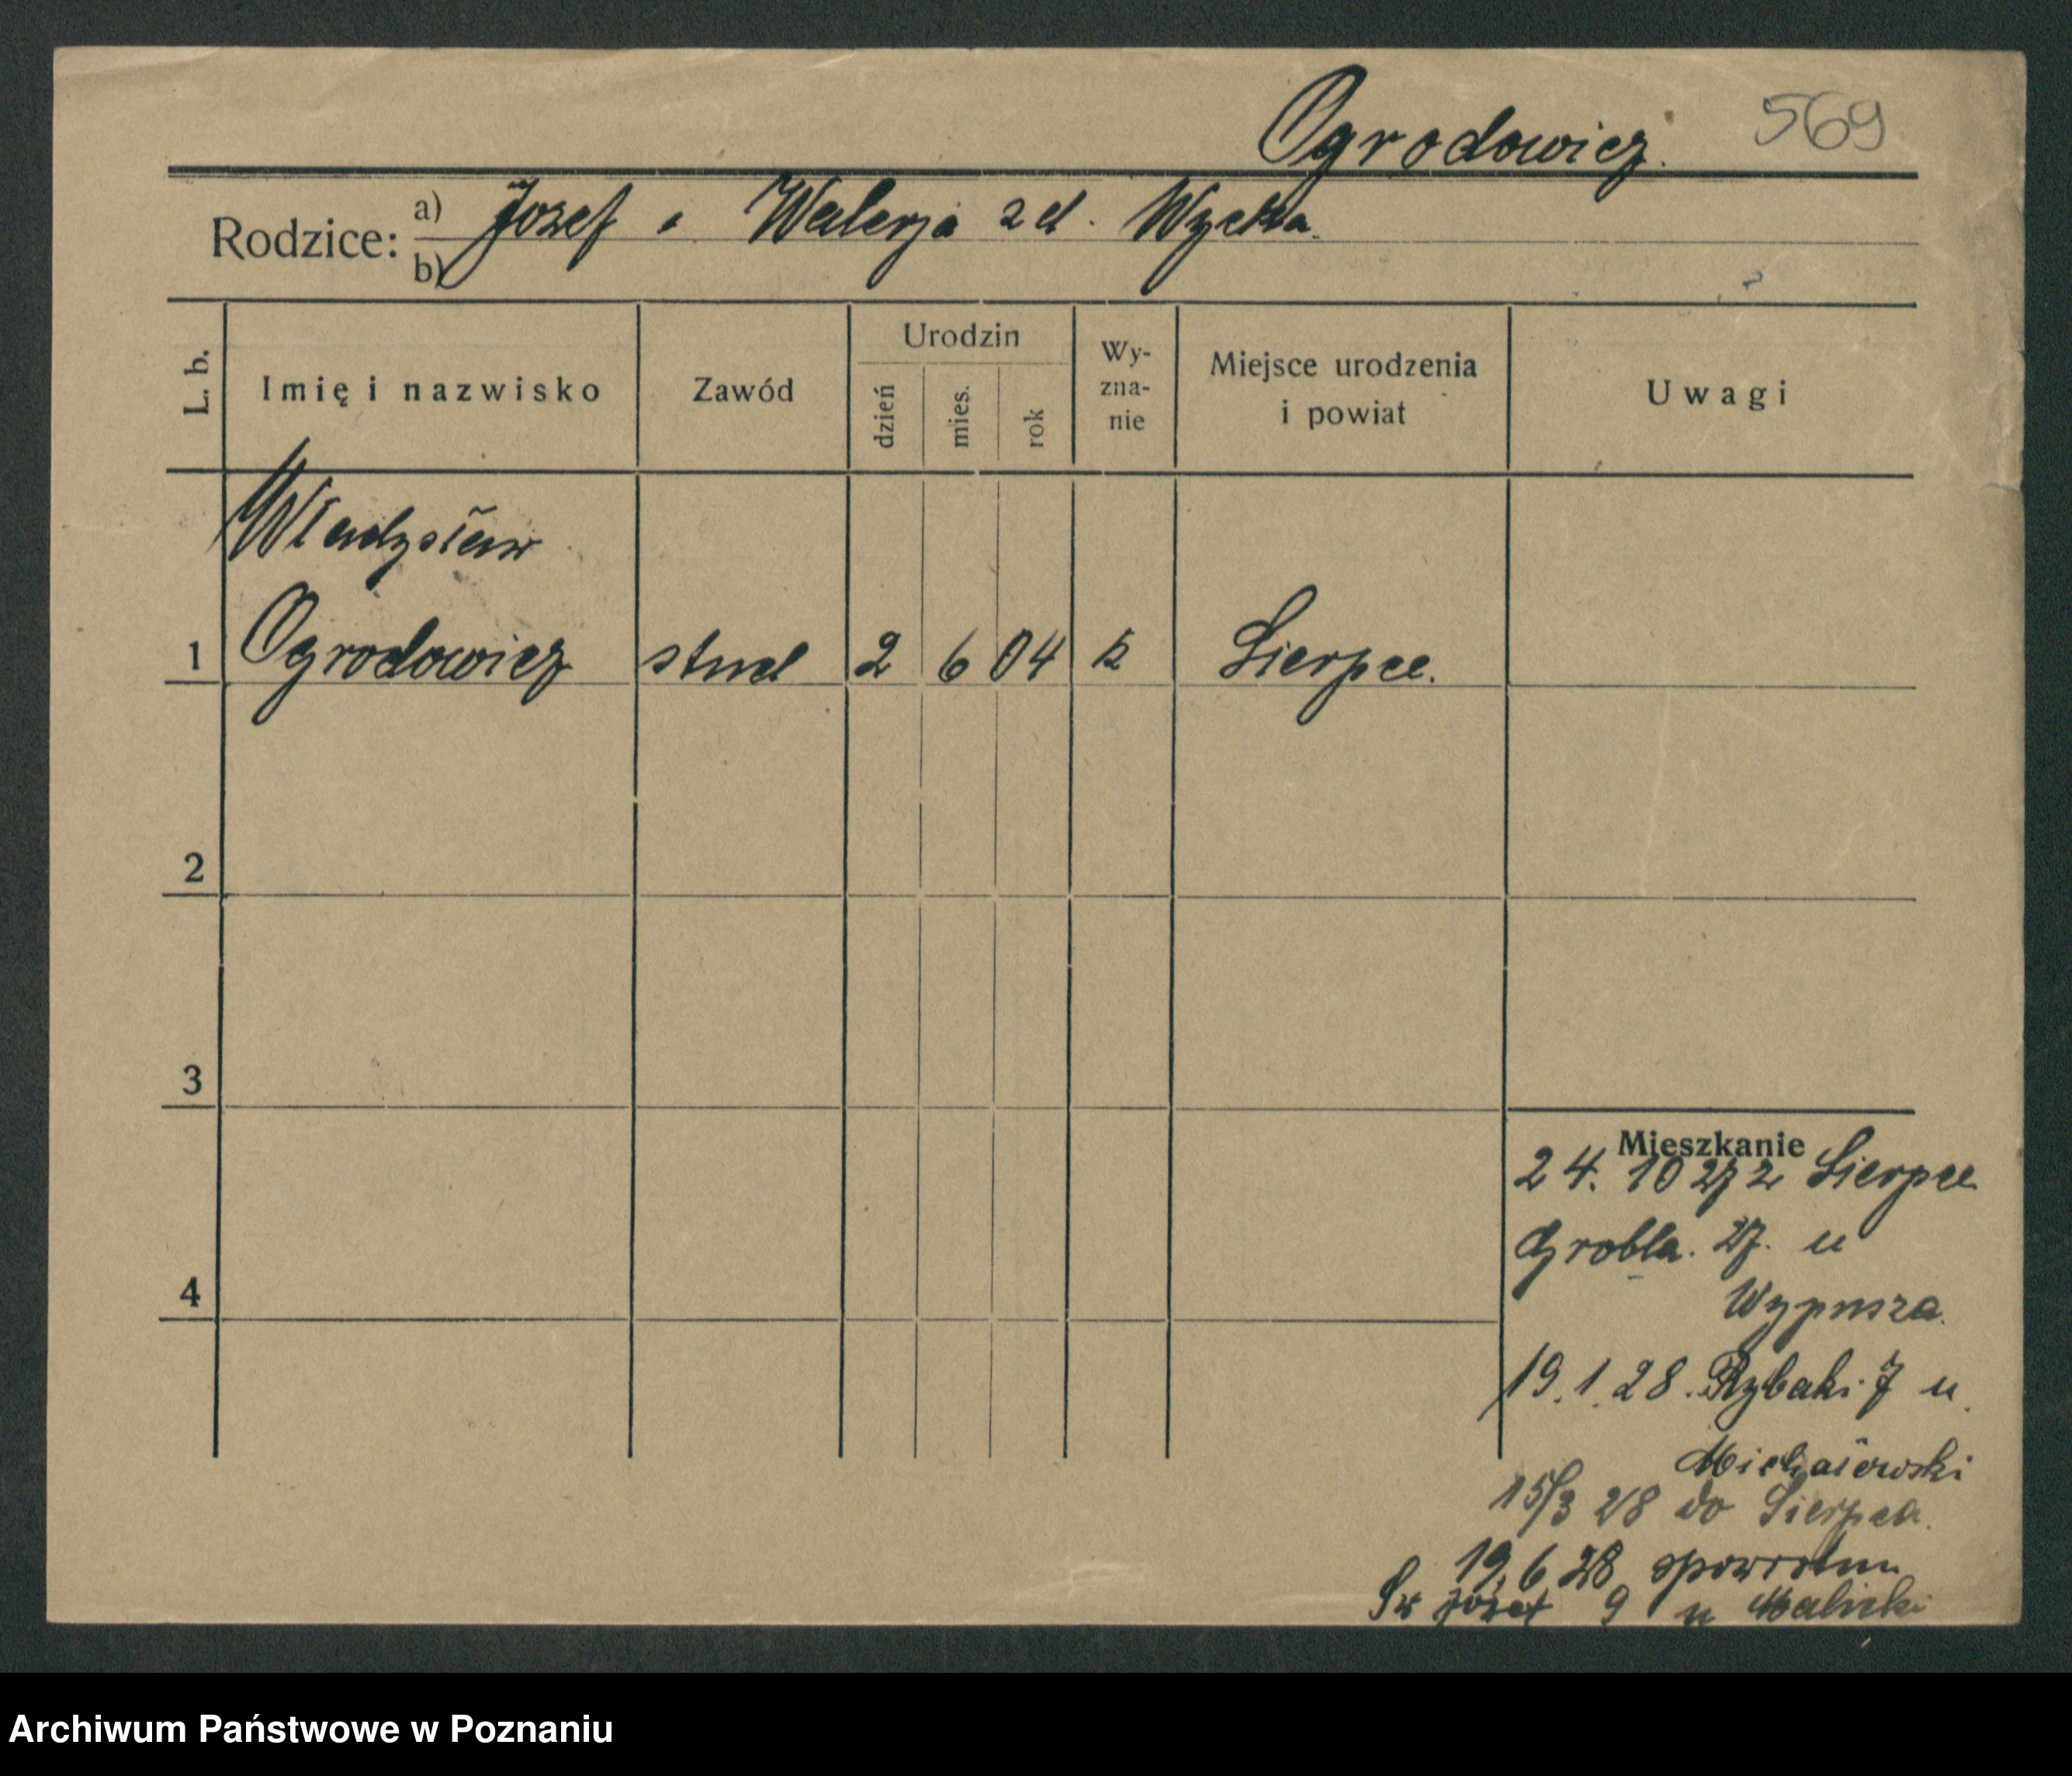 Ogrodowicz. 569
Rodzice: a) Józef i Walerja zd. Wycka
b)
L. b. Imię i nazwisko Zawód Urodzin dzień mies. rok Wy-zna-nie Miejsce urodzenia i powiat Uwagi
Władysław
1 Ogrodowicz stud 2 6 04 k Sierpce.
2
3
Mieszkanie
24. 10 27 z Sierpce
Grobla. 27. u
4
Wypusza.
19.1.28. Rybaki 7 u
Michałowski
15/3 28 do Sierpca.
19.6 28 spowrotem
Św Józef 9 u Malicki
Archiwum Państwowe w Poznaniu